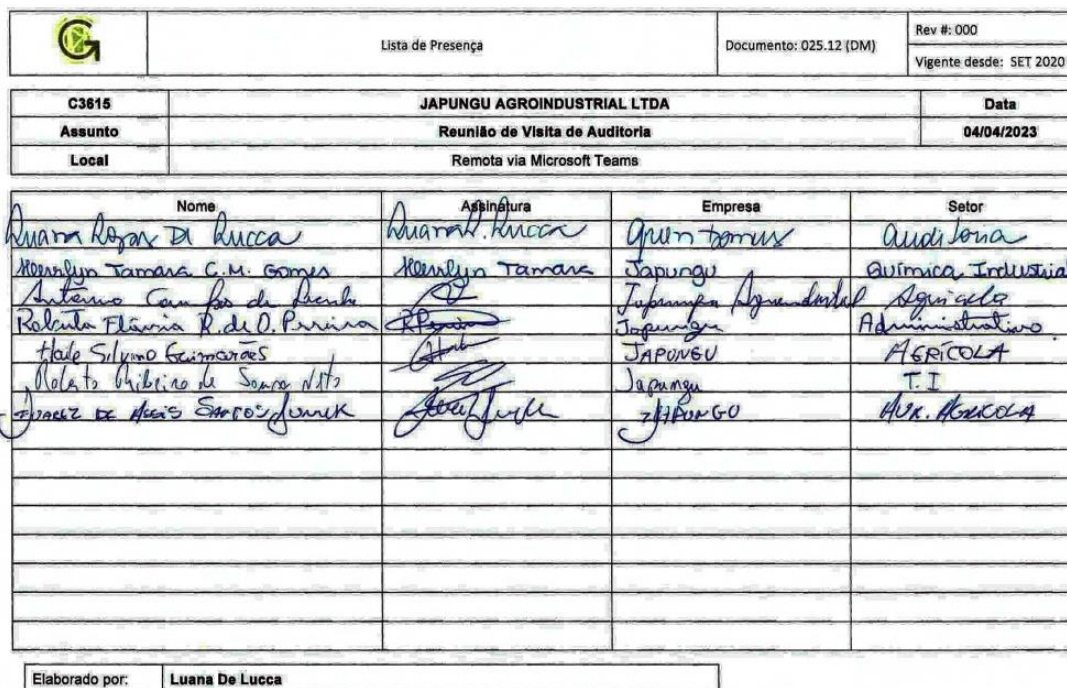 Lista de Presença
Documento: 025.12 (DM)
Rev #: 000
Vigente desde: SET 2020
C3615 JAPUNGU AGROINDUSTRIAL LTDA Data
Assunto Reunião de Visita de Auditoria 04/04/2023
Local Remota via Microsoft Teams
Nome Assinatura Empresa Setor
Luana Di Lucca Luana Lucca Green Domus auditoria
Tamara C.M. Gomes Tamara Japungu Química Industrial
Antonio Campos de Japungu Agroindustrial Agricola
Roberta Flávia R. de O. Pereira RPereira Japungu Administrativo
Silvino Guimarães JAPUNGU AGRÍCOLA
Roberto Ribeiro de Souza Neto Japungu T.I
JUAREZ DE ASSIS SANTOS JAPUNGU AGRICOLA
Elaborado por: Luana De Lucca